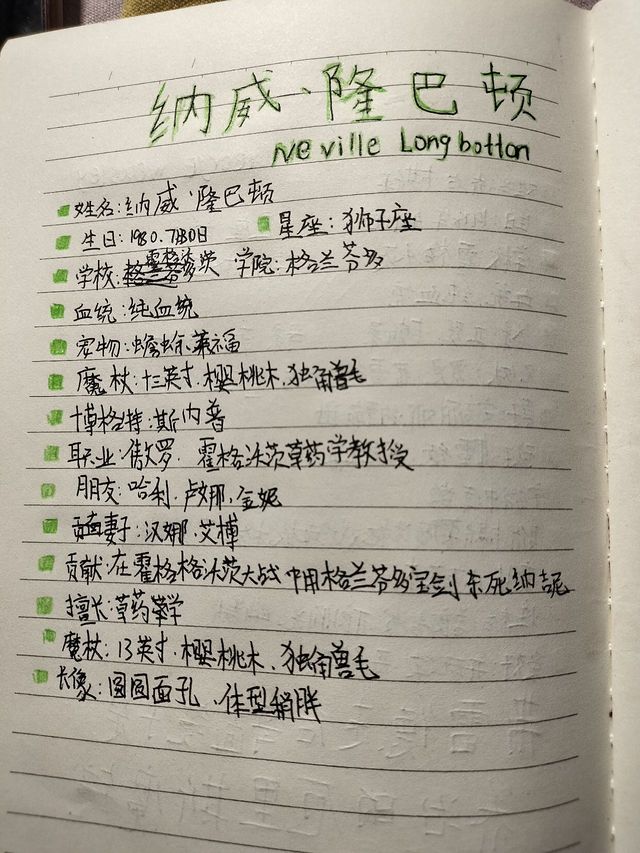 纳威·隆巴顿
Neville Longbotton
姓名:纳威·隆巴顿
生日:1980.7月30日 星座:狮子座
学校:霍格沃茨 学院:格兰芬多
血统:纯血统
宠物:蟾蜍莱福
魔杖:十三英寸.樱桃木.独角兽毛
博格特:斯内普
职业:傲罗.霍格沃茨草药学教授
朋友:哈利.卢娜.金妮
妻子:汉娜.艾博
贡献:在霍格格沃茨大战中用格兰芬多宝剑杀死纳吉尼
擅长:草药学
魔杖:13英寸.樱桃木.独角兽毛
长像:圆圆面孔.体型稍胖